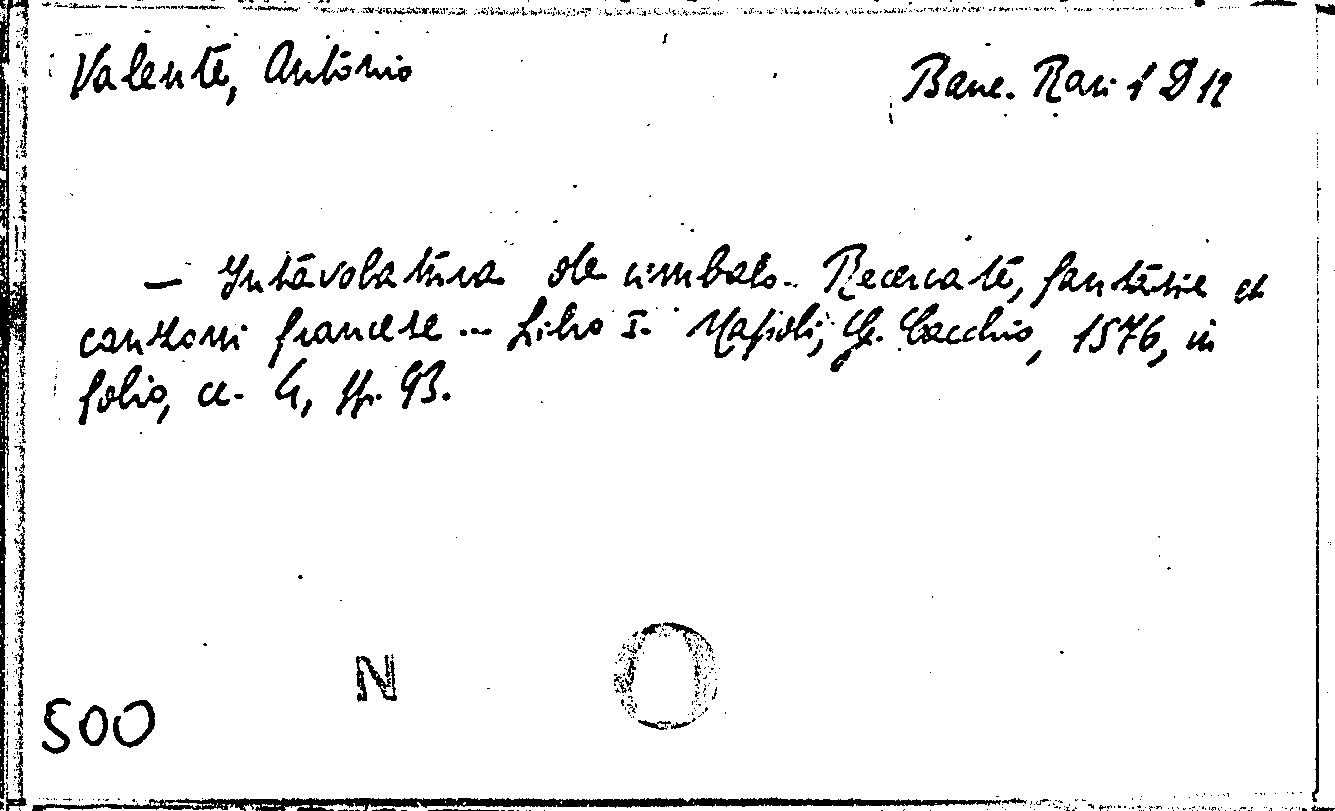 Valente, Antonio
Banc. Rari 1 D 12
— Intavolatura de cimbalo. Recercate, fantasie et
canzoni francese ... Libro I. Napoli, G. Cacchio, 1576, in
folio, cc. 4, pp. 93.
N
500